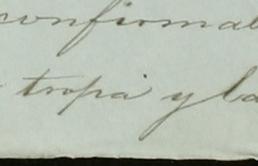 confirmab
tropa y la